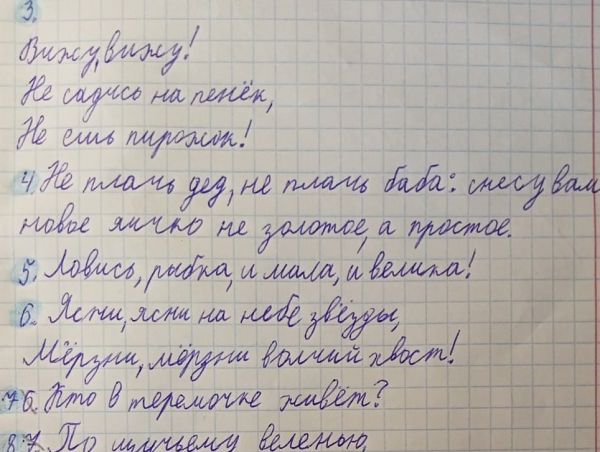 3.
Вижу, вижу!
Не садись на пенёк,
Не ешь пирожок!
4. Не плачь дед, не плачь баба: снесу вам
новое яичко не золотое, а простое.
5. Ловись, рыбка, и мала, и велика!
6. Ясни, ясни на небе звёзды,
Мёрзни, мёрзни волчий хвост!
76. Кто в теремочке живёт?
87. По щучьему веленью,